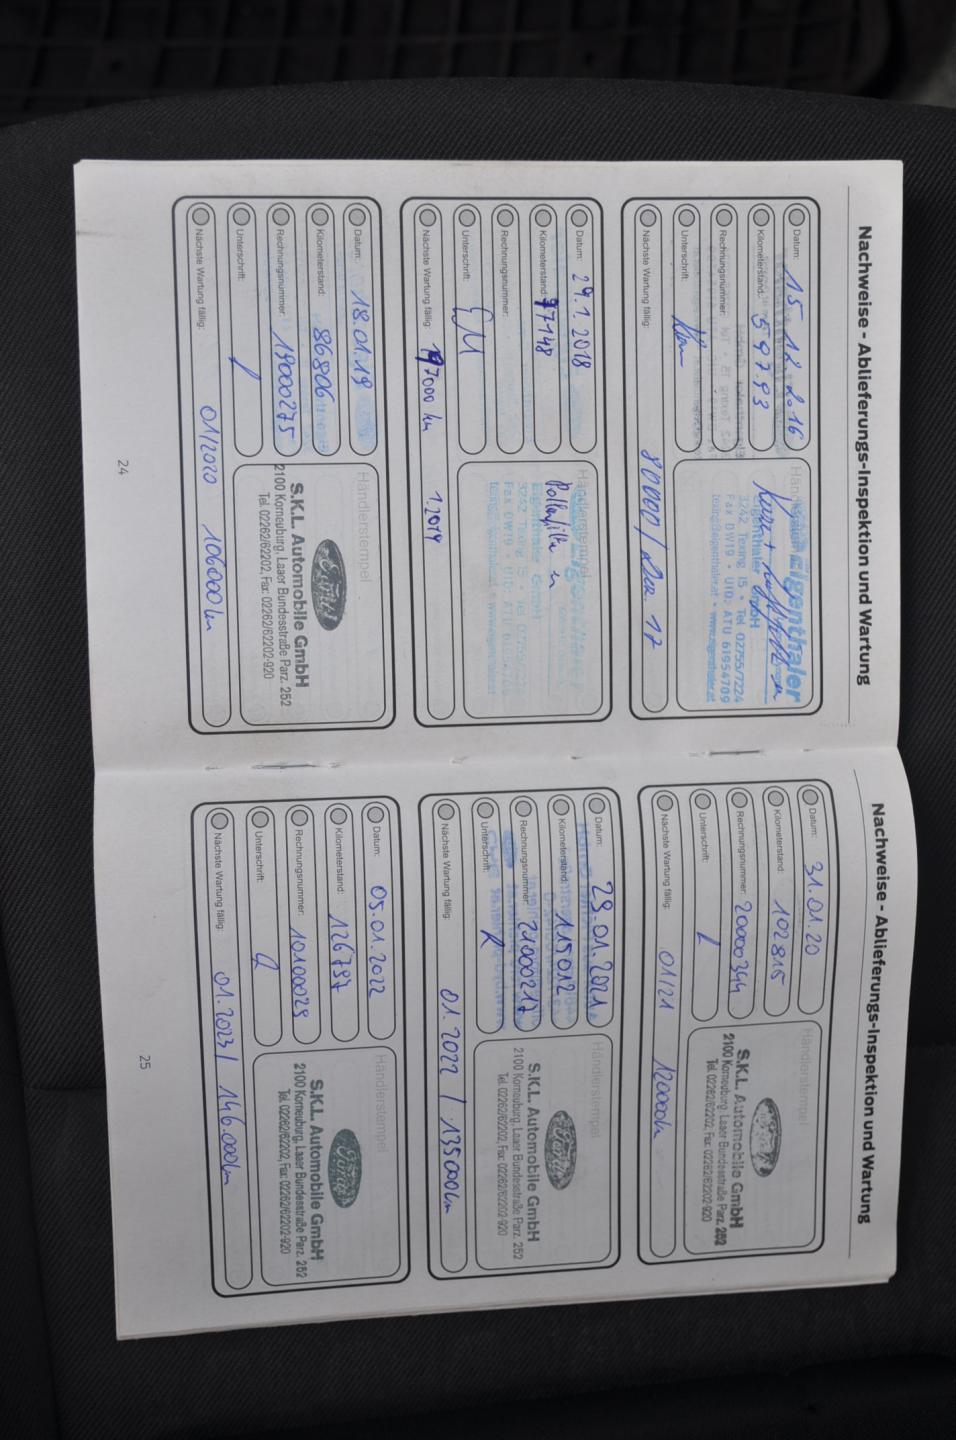 Nachweise - Ablieferungs-Inspektion und Wartung
Datum: 15.12.2016
Kilometerstand: 59793
Rechnungsnummer:
Unterschrift:
Nächste Wartung fällig: 80000 / Dez. 17
Händlerstempel
Eigenthaler
Eigenthaler GmbH
3242 Texing 15 • Tel. 02755/7224
Fax DW19 • UID: ATU 61954709
texing@eigenthaler.at • www.eigenthaler.at
Datum: 29.1.2018
Kilometerstand: 77148
Rechnungsnummer:
Unterschrift:
Nächste Wartung fällig: 97000 km 1.2019
Händlerstempel
Pollenfilter
Eigenthaler GmbH
3242 Texing 15 • Tel. 02755/7224
Datum: 18.01.19
Kilometerstand: 86806
Rechnungsnummer: 19000275
Unterschrift:
Nächste Wartung fällig: 01/2020 106000 km
Händlerstempel
Ford
S.K.L. Automobile GmbH
2100 Korneuburg, Laaer Bundesstraße Parz. 252
Tel. 02262/62202, Fax: 02262/62202-920
24
Nachweise - Ablieferungs-Inspektion und Wartung
Datum: 31.01.20
Kilometerstand: 102815
Rechnungsnummer: 20000344
Unterschrift:
Nächste Wartung fällig: 01/21 120000 km
Händlerstempel
Ford
S.K.L. Automobile GmbH
2100 Korneuburg, Laaer Bundesstraße Parz. 252
Tel. 02262/62202, Fax: 02262/62202-920
Datum: 29.01.2021
Kilometerstand: 115012
Rechnungsnummer: 21000217
Unterschrift:
Nächste Wartung fällig: 01.2022 / 135000 km
Händlerstempel
Ford
S.K.L. Automobile GmbH
2100 Korneuburg, Laaer Bundesstraße Parz. 252
Tel. 02262/62202, Fax: 02262/62202-920
Datum: 05.01.2022
Kilometerstand: 126797
Rechnungsnummer: 10100029
Unterschrift:
Nächste Wartung fällig: 01.2023 / 146.000 km
Händlerstempel
Ford
S.K.L. Automobile GmbH
2100 Korneuburg, Laaer Bundesstraße Parz. 252
Tel. 02262/62202, Fax: 02262/62202-920
25